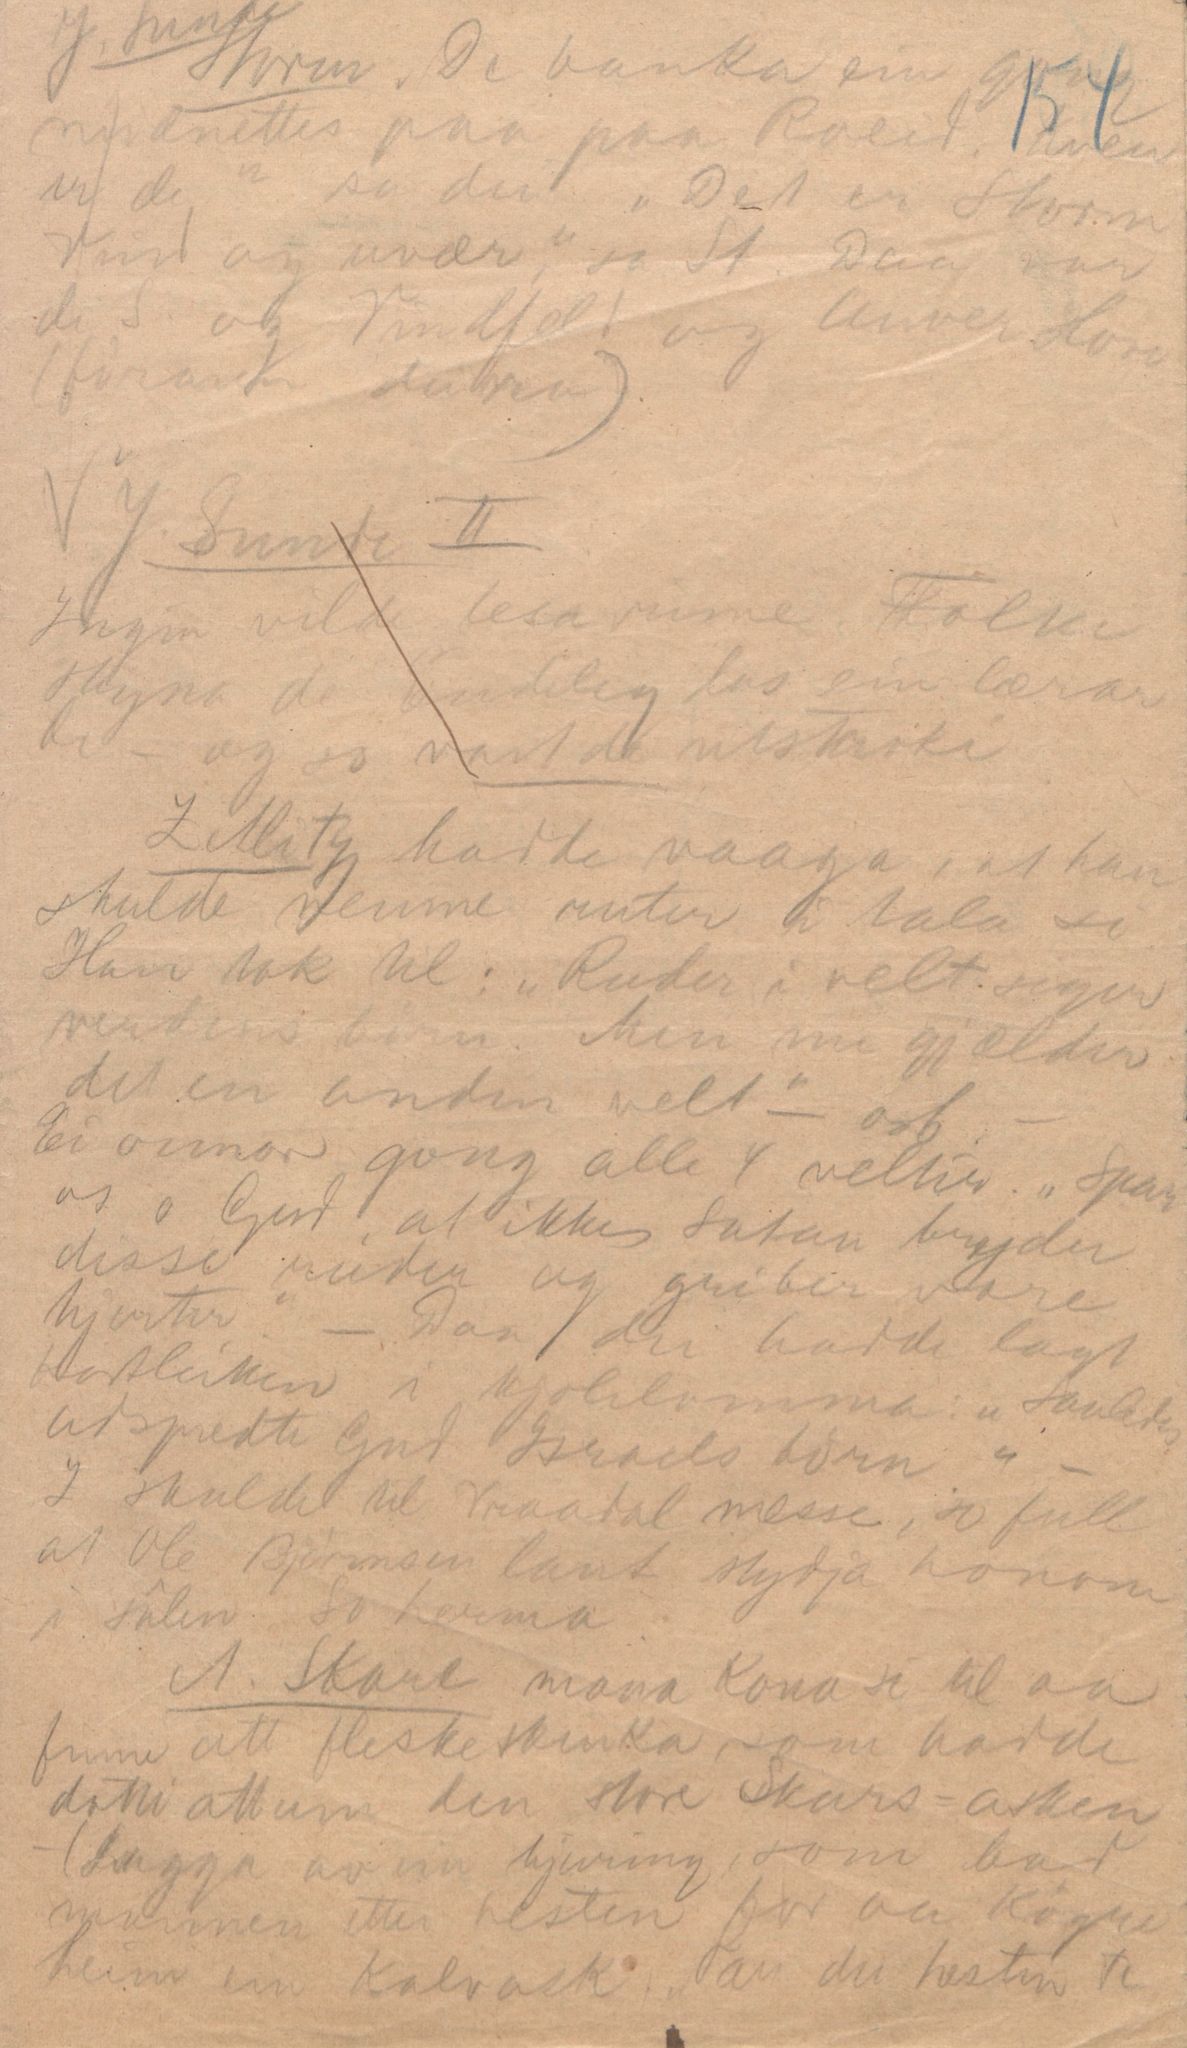 Y. Sunde
Storm. De banka ein gong 154
midnettes paa paa Roeid. "Kven
er de" sa dei "Det er Storm
Vind og uvær," sa St. Daa var
de S. og Vindfell og Uver Hovo
(
V Y. Sunde II
Ingin vilde lesa rime. Folke
skyna de endeleg las ein lærar
de – og so vart de utstroki
Z Mitz hadde vaaga, at han
skulde nemne ruter i tala si
Han tok til: "Ruder i velt siger
verdens børn. Men nu gjælder
det en anden velt" – osb. –
Ei onnor gong alle 4 veltir. "Spar
os o Gud, at ikke Satan bryder
disse ruder og griber vore
hjerter" – Daa dei hadde lagt
kortleiken i kjolelomma: "Saaledes
adspredte Gud Israels børn" –
Z skulde til Vraadal messe, so full
at Ole Bjørnsen laut stydja honom
i sålen. So herma
A. Skare mana Kona si til aa
finne att fleskeskinka, som hadde
dotti attum den store Skars=asken
– ( av ein hjuring, som bad
mannen etter hesten for aa køyre
heim ein Kalvask. "Tar du hesten te